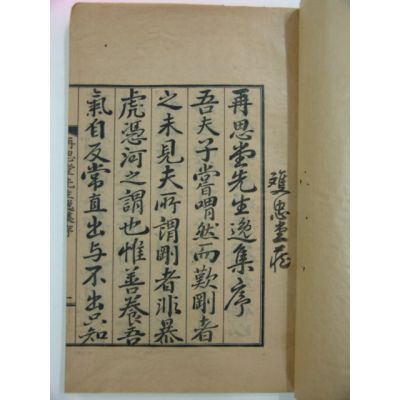 再思堂先生逸集序
吾夫子嘗喟然而歎剛者
之未見夫所謂剛者非暴
虎憑河之謂也惟善養吾
氣自反常直出与不出只知
再思堂先生逸集序
忠堂藏